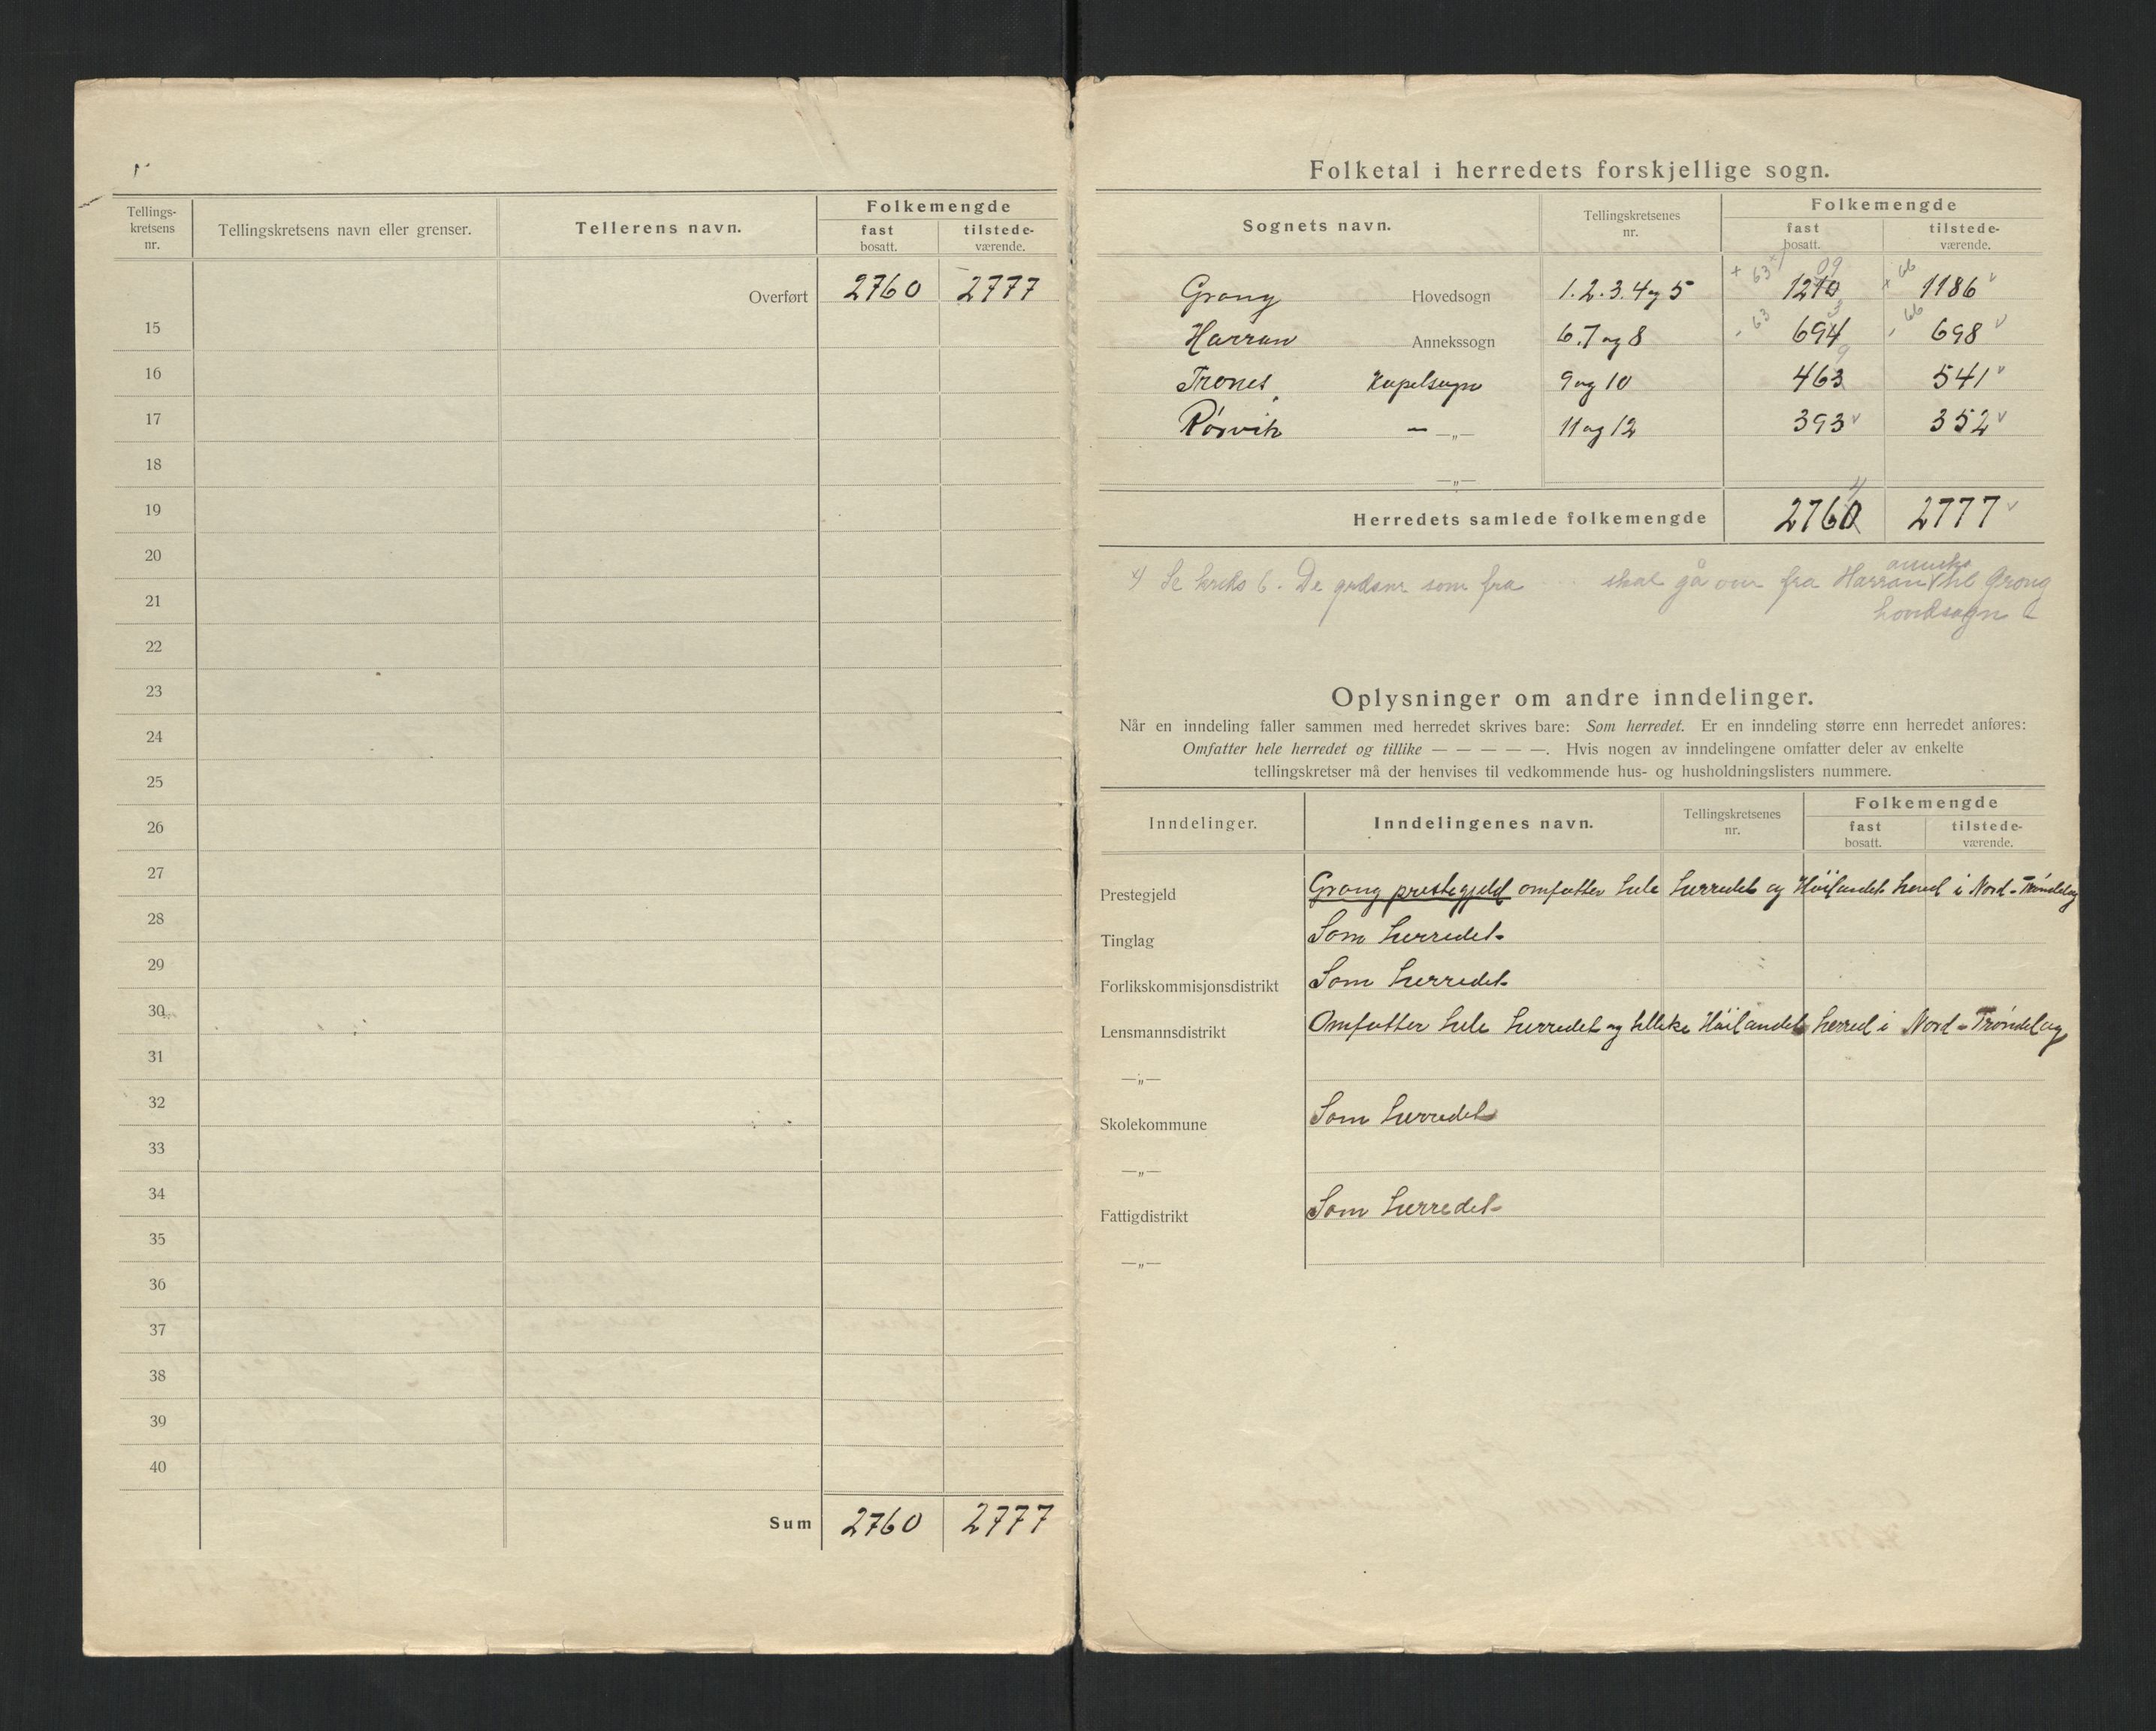 Tellings-
kretsens
nr.
Tellingskretsens navn eller grenser.
Tellerens navn.
Folkemengde
fast
bosatt.
tilstede-
værende.
Overført 2760 2777
15
16
17
18
19
20
21
22
23
24
25
26
27
28
29
30
31
32
33
34
35
36
37
38
39
40
Sum 2760 2777
Folketal i herredets forskjellige sogn.
Sognets navn.
Tellingskretsenes
nr.
Folkemengde
fast
bosatt.
tilstede-
værende.
+ 63 09 + 66
Grong Hovedsogn 1.2.3.4 og 5 1210 1186 v
- 63 3 - 66
Harran Annekssogn 6.7 og 8 694 698 v
9
Trones, Kapelsogn 9 og 10 463 541 v
Rörvik — —„— 11 og 12 393 v 352 v
—„—
4
Herredets samlede folkemengde 2760 2777 v
anneks
x) Se kreds 6. De som fra skal gå over fra Harran til Grong
hovedsogn
Oplysninger om andre inndelinger.
Når en inndeling faller sammen med herredet skrives bare: Som herredet. Er en inndeling større enn herredet anføres:
Omfatter hele herredet og tillike — — — — —. Hvis nogen av inndelingene omfatter deler av enkelte
tellingskretser må der henvises til vedkommende hus- og husholdningslisters nummere.
Inndelinger.
Inndelingenes navn.
Tellingskretsenes
nr.
Folkemengde
fast
bosatt.
tilstede-
værende.
Prestegjeld Grong prestegjeld omfatter hele herredet og Höilandet herred i Nord-Tröndelag
Tinglag Som herredet
Forlikskommisjonsdistrikt Som herredet
Lensmannsdistrikt Omfatter hele herredet og tillike Höilandet herred i Nord-Tröndelag
—„—
Skolekommune Som herredet
—„—
Fattigdistrikt Som herredet
—„—